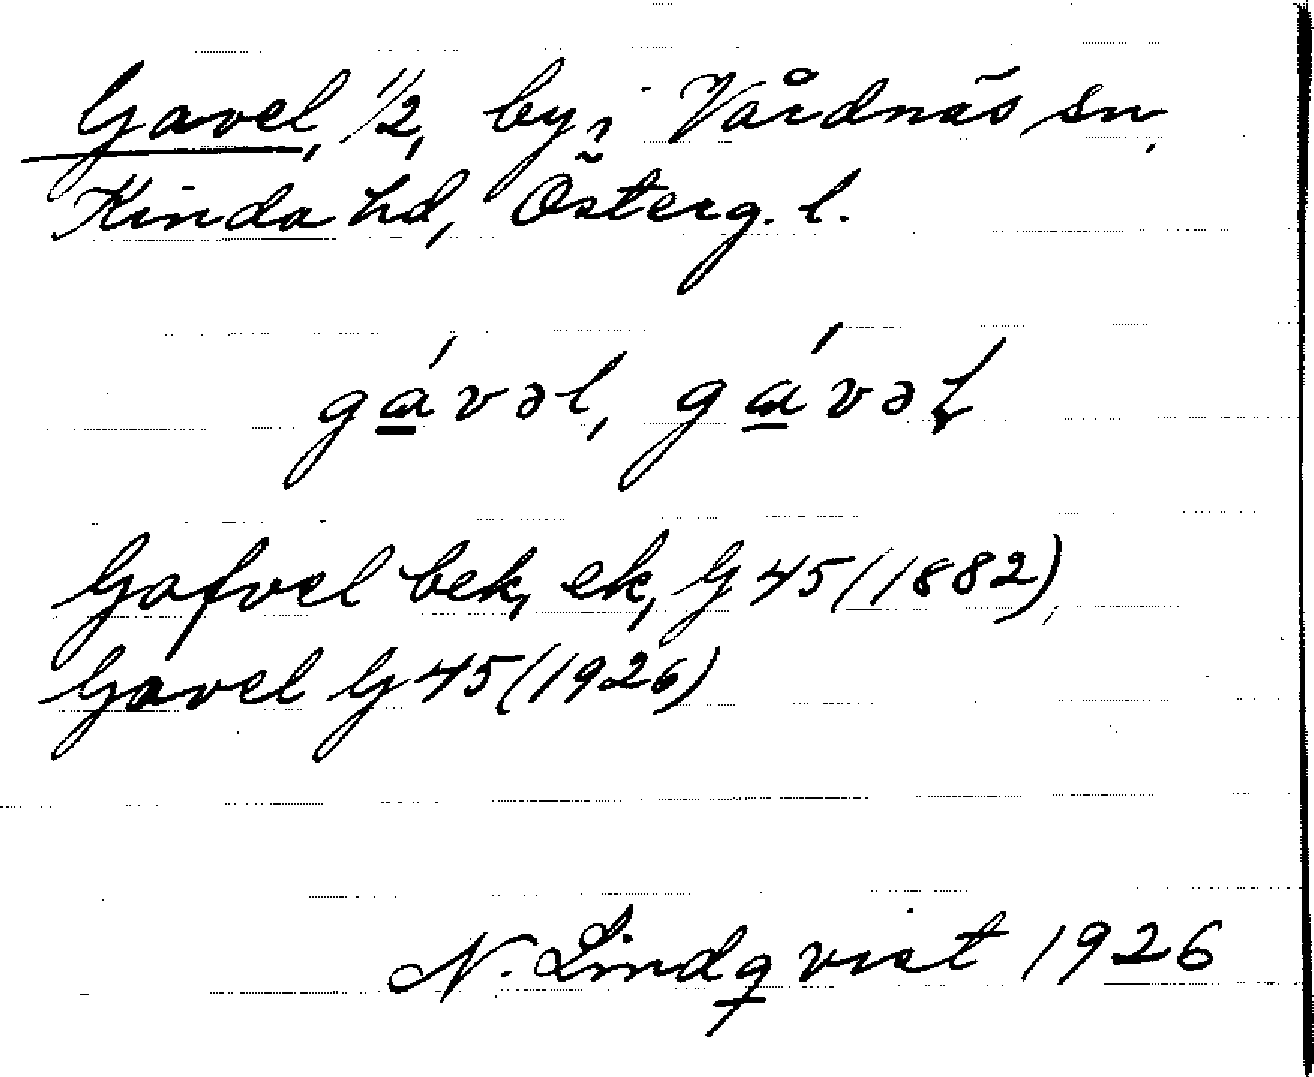 Gavel, 1/2, by, i Vårdnäs sn,
Kinda hd, Österg. l.
gávəl, gávəɫ
Gafvel bek, ek, G 45 (1882),
Gavel G 45 (1926)
N. Lindqvist 1926